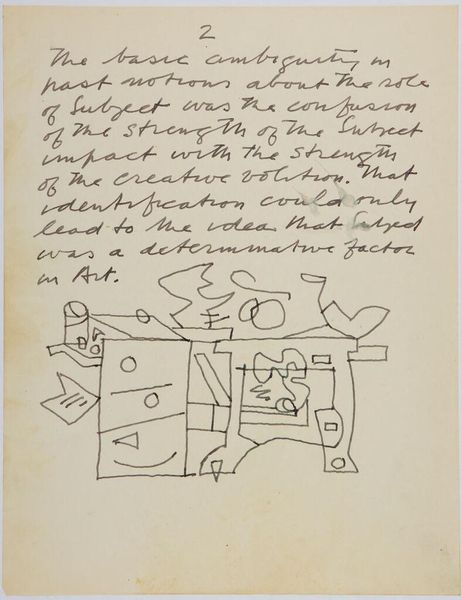 2
The basic ambiguity in
past notions about the role
of Subject was the confusion
of the strength of the Subject
impact with the strength
of the creative volition. That
identification could only
lead to the idea that Subject
was a determinative factor
in Art.